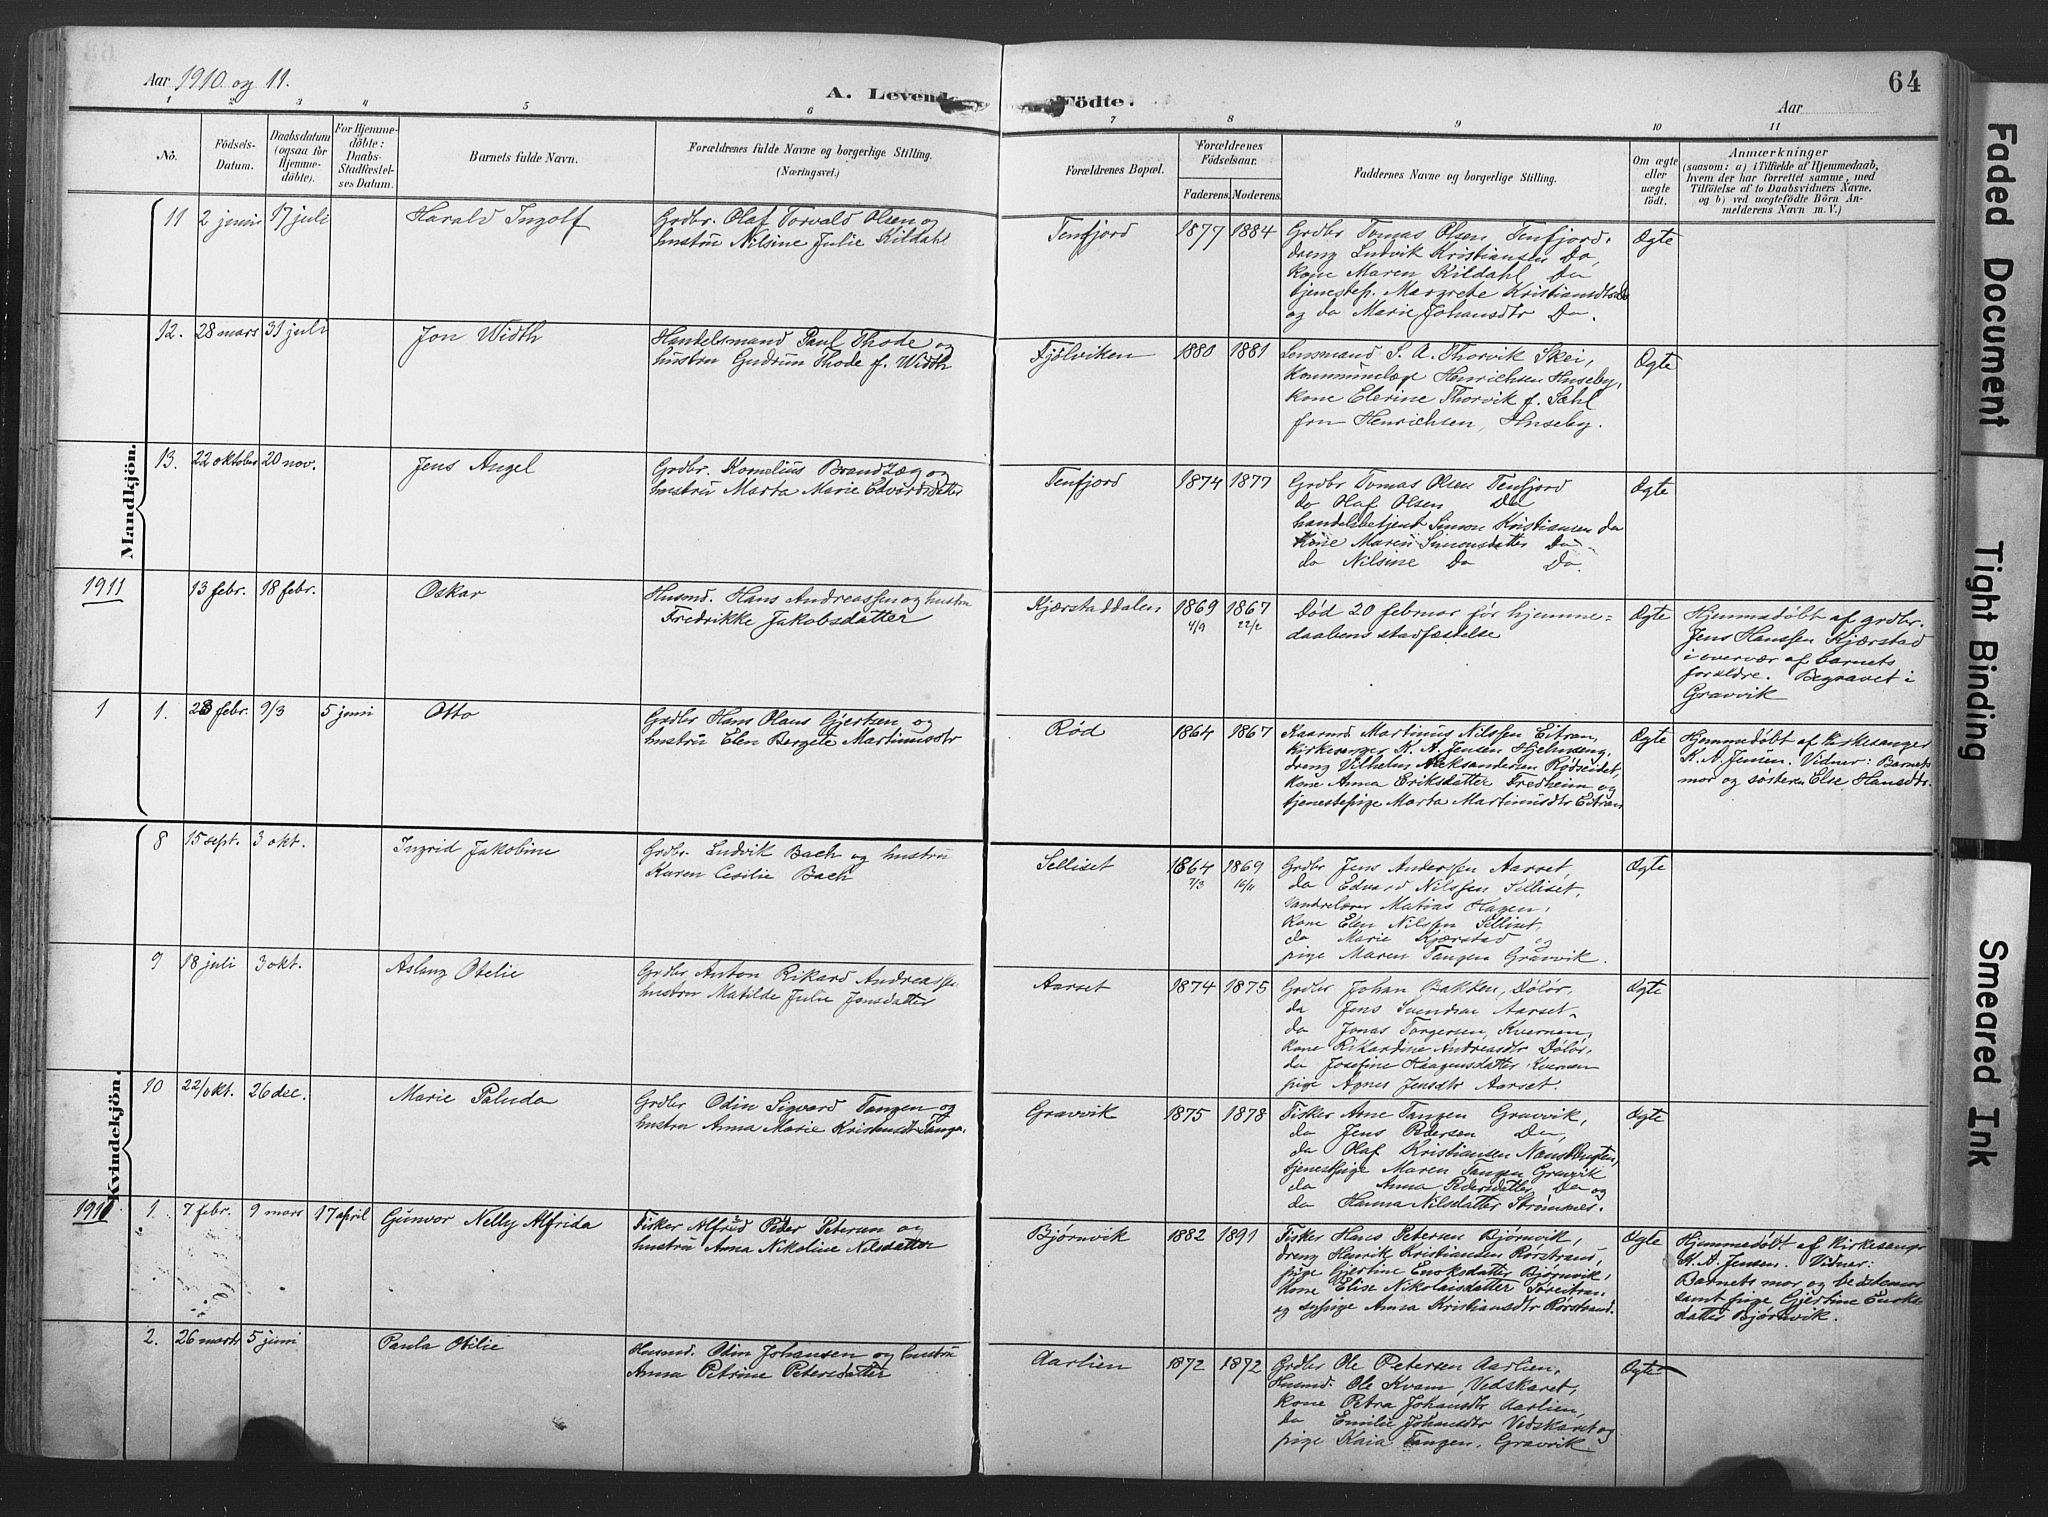 64
Aar 1910 og 11.
A. Levende Födte.
Aar
1 2 3 4 5 6 7 8 9 10 11
No.
Födsels-
Datum.
Daabsdatum
(ogsaa för
Hjemme-
döbte).
For Hjemme-
döbte:
Daabs-
Stadfæstel-
ses Datum.
Barnets fulde Navn.
Forældrenes fulde Navne og borgerlige Stilling.
(Næringsvei.)
Forældrenes Bopæl.
Forældrenes
Födselsaar.
Faderens.
Moderens.
Faddernes Navne og borgerlige Stilling.
Om ægte
eller
uægte
födt.
Anmærkninger
(saasom: a) i Tilfælde af Hjemmedaab,
hvem der har forrettet samme, med
Tilföielse af to Daabsvidners Navne.
og b) ved uægtefödte Börn An-
melderens Navn m. V.)
Mandkjön.
11 2 juni 17 juli
Harald Ingolf
Grdbr. Olaf Torvald Olsen og
hustru Nilsine Julie Kildahl
Tenfjord
1877 1884
Grdbr Tomas Olsen Tenfjord,
dreng Ludvik Kristiansen Do,
kone Maren Kildahl Do
tjenestep. Margrete Kristiansdtr Do
og do Marie Johansdtr Do.
Ægte
12. 28 mars 31 juli
Jon Width
Handelsmand Paul Thode og
hustru Gudrun Thode f. Width
Fjølviken
1880 1881
Lensmand S. A. Thorvik Skei,
kommunelæge Henrichsen Huseby,
kone Elerine Thorvik f. Sæhl
fru Henrichsen, Huseby.
Ægte
13. 22 oktober 20 nov.
Jens Angel
Grdbr. Kornelius Brandtzæg og
hustru Marta Marie Edvardsdatter
Tenfjord
1874 1877
Grdbr Tomas Olsen Tenfjord
do Olaf Olsen Do
handelsbetjent Simon Kristiansen do
kone Maren Simonsdatter Do
do Nilsine Do Do.
Ægte
1911
13 febr. 18 febr.
Oskar
Husmd. Hans Andreassen og hustru
Fredrikke Jakobsdatter
Kjærstaddalen
1869 1867
4/9 22/2
Død 20 februar før hjemme-
daabens stadfæstelse
Ægte
Hjemmedøbt af grdbr.
Jens Hanssen Kjærstad
i overvær af barnets
forældre. Begravet i
Gravvik
1 1. 28 febr. 9/3 5 juni
Otto
Grdbr Hans Olaus Gjertsen og
hustru Elen Bergete Martinusdtr
Rød
1864 1867
Kaarmd Martinus Nilssen Eitran,
kirkesanger K. A. Jensen Hjelmseng,
dreng Vilhelm Aleksandersen Rødseidet,
kone Anna Eriksdatter Fredheim og
tjenestepige Marta Martinusdtr Eitran
Ægte
Hjemmedøbt af kirkesanger
K. A. Jensen. Vidner: Barnets
mor og søsteren Else Hansdtr.
Kvindekjön.
8 15 sept. 3 okt.
Ingrid Jakobine
Grdbr. Ludvik Bach og hustru
Karen Cesilie Bach
Selliset
1864 1869
7/3 16/11
Grdbr Jens Anderssen Aarset,
do Edvard Nilssen Selliset,
Vandrelærer Matias Hagen,
kone Elen Nilssen Selliset,
do Marie Kjærstad og
pige Maren Tangen Gravvik.
Ægte
9 18 juli 3 okt.
Aslaug Otelie
Grdbr Anton Rikard Andreassen
hustru Matilde Julie Jonsdatter
Aarset
1874 1875
Grdbr Johan Bakken, Dølør,
do Jens Svendsen Aarset
do Jonas Torgersen, Kvernen,
kone Rikardine Andreasdtr Dølør,
do Josefine Haagensdatter, Kvernen
pige Agnes Jensdtr Aarset.
Ægte
10 22/okt. 26 dec.
Marie Paluda
Grdbr Odin Sigvard Tangen og
hustru Anna Marie Kristensdtr Tangen
Gravvik
1875 1878
Fisker Arne Tangen Gravvik,
do Jens Pedersen Do,
do Olaf Kristiansen
tjenestepige Maren Tangen Gravvik
do Anna Pedersdatter Do og
do Hanna Nilsdatter Strømnes.
Ægte
1911
1. 7 febr. 9 mars 17 april
Gunvor Nelly Alfrida
Fisker Alfred Peder Petersen og
hustru Anna Nikoline Nilsdatter
Bjørnvik
1882 1891
Fisker Hans Petersen Bjørnvik,
dreng Henrik Kristiansen Rørstrand,
pige Gjertine Enoksdatter Bjørnvik,
kone Elise Nikolaisdatter
og sypige Anna Kristiansdtr Rørstrand.
Ægte
Hjemmedøbt af kirkesanger
K. A. Jensen. Vidner:
Barnets mor og bedstemor
samt pige Gjertine Enoks-
datter Bjørnvik.
2. 26 marts 5 juni
Paula Otilie
Husmd. Odin Johansen og hustru
Anna Petrine Petersdatter
Aarlien
1872 1872
Grdbr Ole Petersen Aarlien,
Husmd. Ole Kvam, Vedskaret,
kone Petra Johansdtr Aarlien,
do Emilie Johansdtr Vedskaret og
pige Kaia Tangen, Gravvik
Ægte
Faded Document
Tight Binding
Smeared Ink